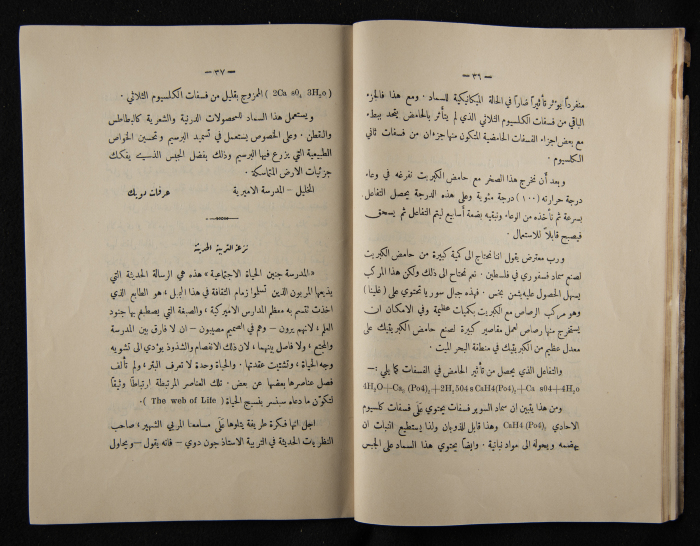 — ٣٦ —
منفرداً يؤثر تأثيراً ضاراً في الحالة الميكانيكية للسماد . ومع هذا فالجزء
الباقي من فسفات الكلسيوم الثلاثي الذي لم يتأثر بالحامض يتحد ببطء
مع بعض اجزاء الفسفات الحامضية المتكون منها جزءان من فسفات ثاني
الكلسيوم .
وبعد أن نخرج هذا الصخر مع حامض الكبريت نفرغه في وعاء
درجة حرارته (١٠٠) درجة مئوية وعلى هذه الدرجة يحصل التفاعل
بسرعة ثم نأخذه من الوعاء ونبقيه بضعة أسابيع ليتم التفاعل ثم يسحق
فيصبح قابلاً للاستعمال .
ورب معترض يقول اننا نحتاج الى كمية كبيرة من حامض الكبريت
لصنع سماد فسفوري في فلسطين . نعم نحتاج الى ذلك ولكن هذا المركب
يسهل الحصول عليه بثمن بخس . فهذه جبال سوريا تحتوي على (غلينا)
وهو مركب الرصاص مع الكبريت بكميات عظيمة وفي الامكان ان
يستخرج منها رصاص لعمل مقاصير كبيرة لصنع حامض الكبريتيك على
معدل عظيم من الكبريتيك في منطقة البحر الميت .
والتفاعل الذي يحصل من تأثير الحامض في الفسفات كما يلي :—
4H₂O+Ca₃ (Po4)₂+2H₂504 s CaH4(Po4)₂+Ca s04+4H₂o
ومن هذا يتبين ان سماد السوبر فسفات يحتوي على فسفات كلسيوم
الاحادي CaH4 (Po4)₂ وهذا قابل للذوبان ولذا يستطيع النبات ان
يهضمه ويحوله الى مواد نباتية . وايضاً يحتوي هذا السماد على الجبس
— ٣٧ —
( 2Ca s0₄ 3H₂o ) الممزوج بقليل من فسفات الكلسيوم الثلاثي .
ويستعمل هذا السماد للمحصولات الدرنية والشعرية كالبطاطس
والقطن . وعلى الخصوص يستعمل في تسميد البرسيم وتحسين الخواص
الطبيعية التي يزرع فيها البرسيم وذلك بفضل الجبس الذي يفكك
جزئيات الارض المتماسكة .
الخليل – المدرسة الاميرية عرفات دويك
نزعة التربية الحديثة
«المدرسة جنين الحياة الاجتماعية» هذه هي الرسالة الحديثة التي
يذيعها المربون الذين تسلموا زمام الثقافة في هذا الجيل ، هو الطابع الذي
اخذت تتسم به معظم المدارس الاميركية ، والصفة التي يصطبغ بها جنود
العلم ، لانهم يرون – وهم في الصميم مصيبون – ان لا فارق بين المدرسة
والمجتمع ، ولا فاصل بينهما ، لان ذلك الانفصام والشذوذ يؤدي الى تشويه
وجه الحياة ، وتشتيت عقدتها . والحياة وحدة لا تعرف البتر ، ولم تألف
فصل عناصرها بعضها عن بعض . تلك العناصر المرتبطة ارتباطاً وثيقاً
لتكون ما دعاه سبنسر بنسيج الحياة ( The web of Life ) .
اجل انها فكرة طريفة يتلوها على مسامعنا المربي الشهير ، صاحب
النظريات الحديثة في التربية الاستاذ جون دوي – فانه يقول – ويحاول